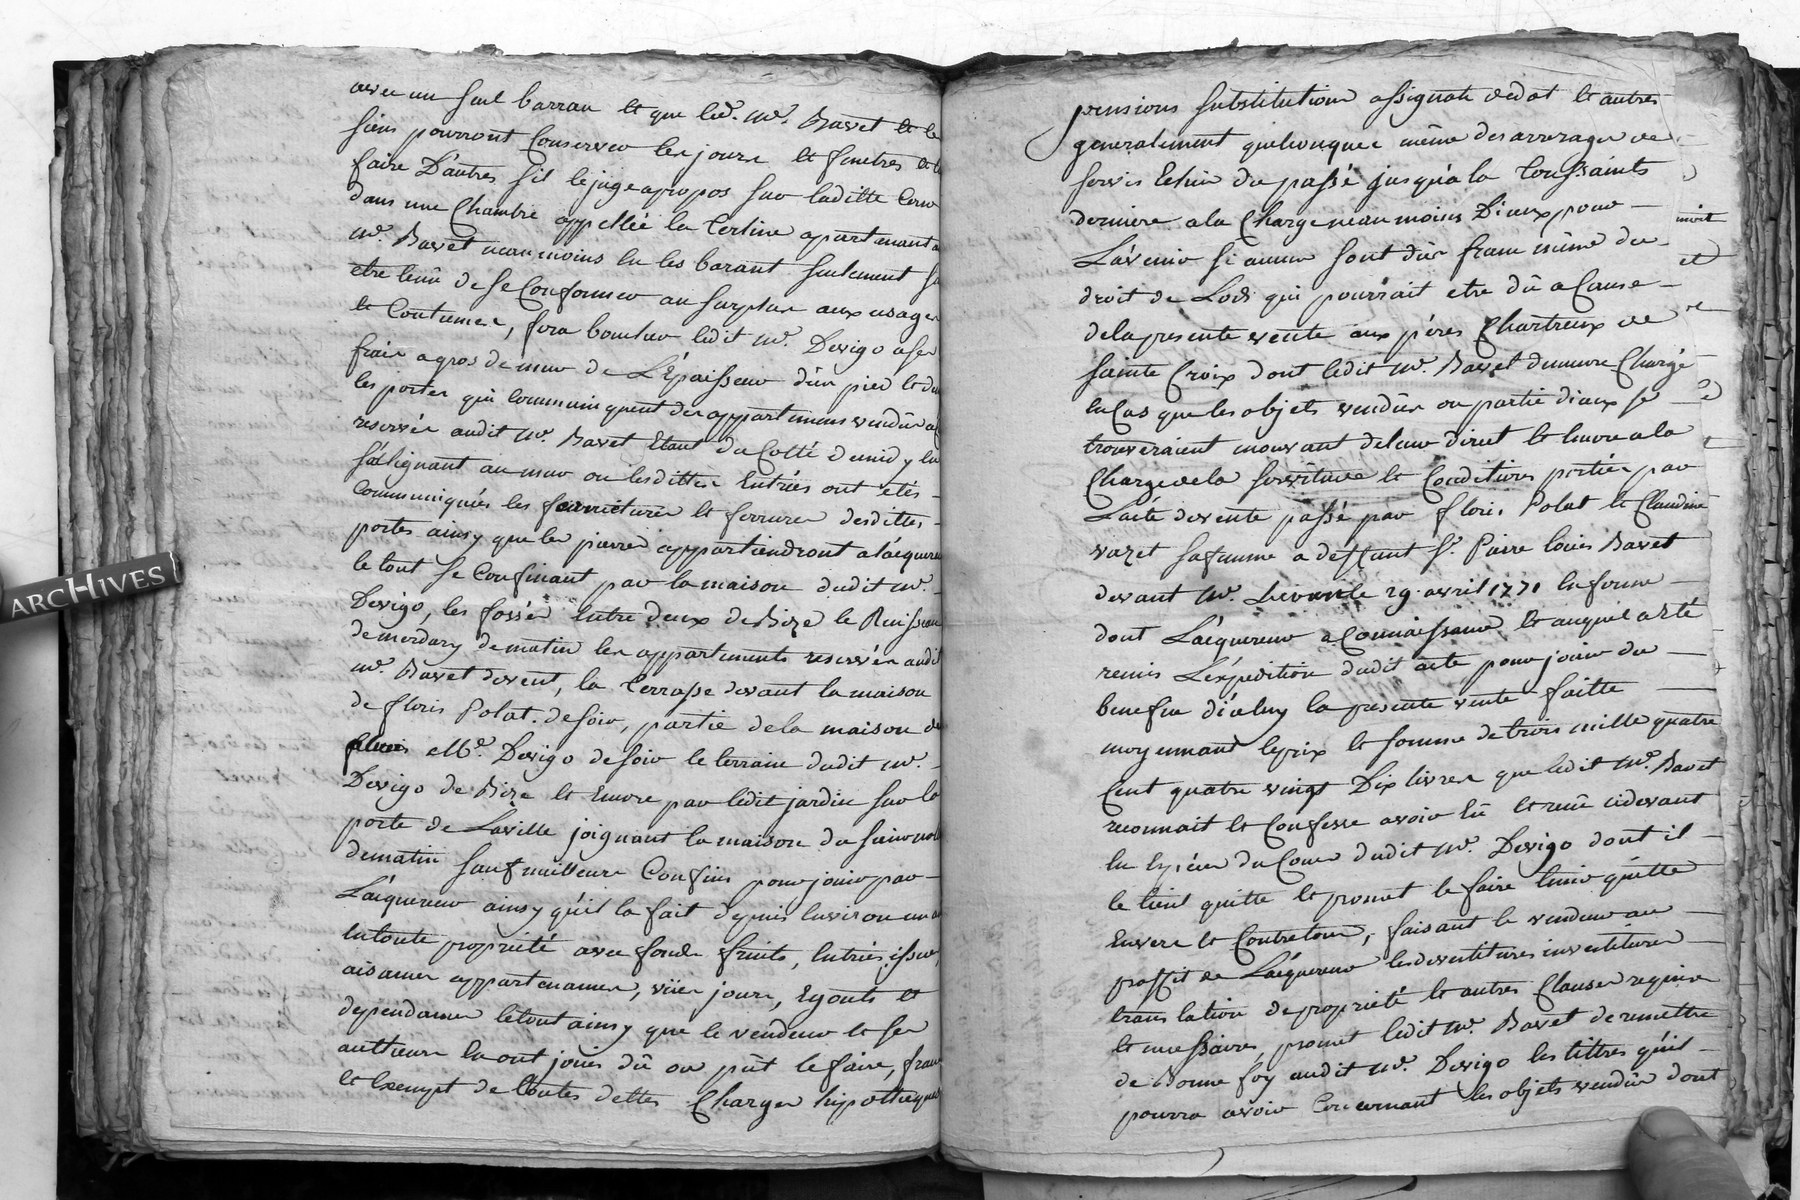 avec un seul barrau et que led. Mr. Bavet et le
siens pourront Conserver les jours et fenetres et
faire D'autres sil lejuge apropos sur laditte Cour
dans une Chambre appellée la Tertine apartenant a
Mr. Bavet neanmoins en les barant seulement
etre tenû de se Conformer au surplus aux usages
et Coutumes, fera boucher ledit Mr. Devigo a ses
frais a gros de mur de L'Epaisseur d'un pied et d
les portes qui communiquent des appartemens vendûs a
reservés audit Mr. Bavet Etant du Cotté demidy en
sélignant au mur ou lesdittes Entrées ont etés
communiqués les fermetures et ferrures desdittes
portes ainsy que les pierres appartiendront a laéquereur
le tout se Confinant par la maison dudit Mr.
Devigo, les fossés entre deux de Bize le Ruisseau
de merdary de matin les appartements reservés audit
Mr. Bavet devent, la Terrasse devant la maison
de floris Polat. de soir, partie de la maison de
Mr. Devigo de soir le terrain dudit Mr.
Devigo de Bize et Encore par ledit jardin sur la
porte de Laville joignant la maison du
dematin sauf meilleurs Confins pour jouir par
Laéquereur ainsy qu'il la fait depuis Environ un a
en toute proprieté avec fonds fruits, Entrées, issues,
aisances appartenances, vües jours, Egouts et
dependances le tout ainsy que le vendeur et ses
autheurs en ont jouis dû ou pût le faire, franc
et Exempt de Toutes dettes Charges hipotheques
pensions substitutions assignats dedot et autres
generalement quelconques même des arrerages de
servis Echus du passé jusqu'a la Toussaints
derniere a la Charge neanmoins D'iceux pour
L'avenir si aucun sont dûs franc même du
droit de Lods qui pourrait etre dû a Cause
de la presente vente aux pères Chartreux de
sainte Croix dont ledit Mr. Bavet demeure Chargé
en Cas que les objets vendûs ou partie diceux se
trouveraient mouvant de leur direct et Encore a la
Charge de la servitude et Conditions portées par
L'acte de vente passé par floris Polat et Claudine
vazet sa femme a deffunt Sr. Pierre louis Bavet
devant Mr. 29. avril 1771 en forme
dont L'aéquereur a Connaissance et auquel a Eté
remis L'éxpedition dudit acte pour jouir du
benefice d'icluy la presente vente faitte
moyennant le prix et somme de trois mille quatre
Cent quatre vingt Dix livres que ledit Mr. Bavet
reconnait et Confesse avoir Eû et reçû cidevant
en Espéces du Cour dudit Mr. Devigo dont il
le tient quitte et promet le faire tenir quitte
Envers et Contre tous, faisant le vendeur au
proffit de Laéquereur les devestitures investitures
translation de proprieté et autres Clauses requises
et necessaires, promet ledit Mr. Bavet de remettre
de Bonne foy audit Mr. Devigo les tittres qu'il
pourra avoir Concernant les objets vendûs dont
ARCHIVES